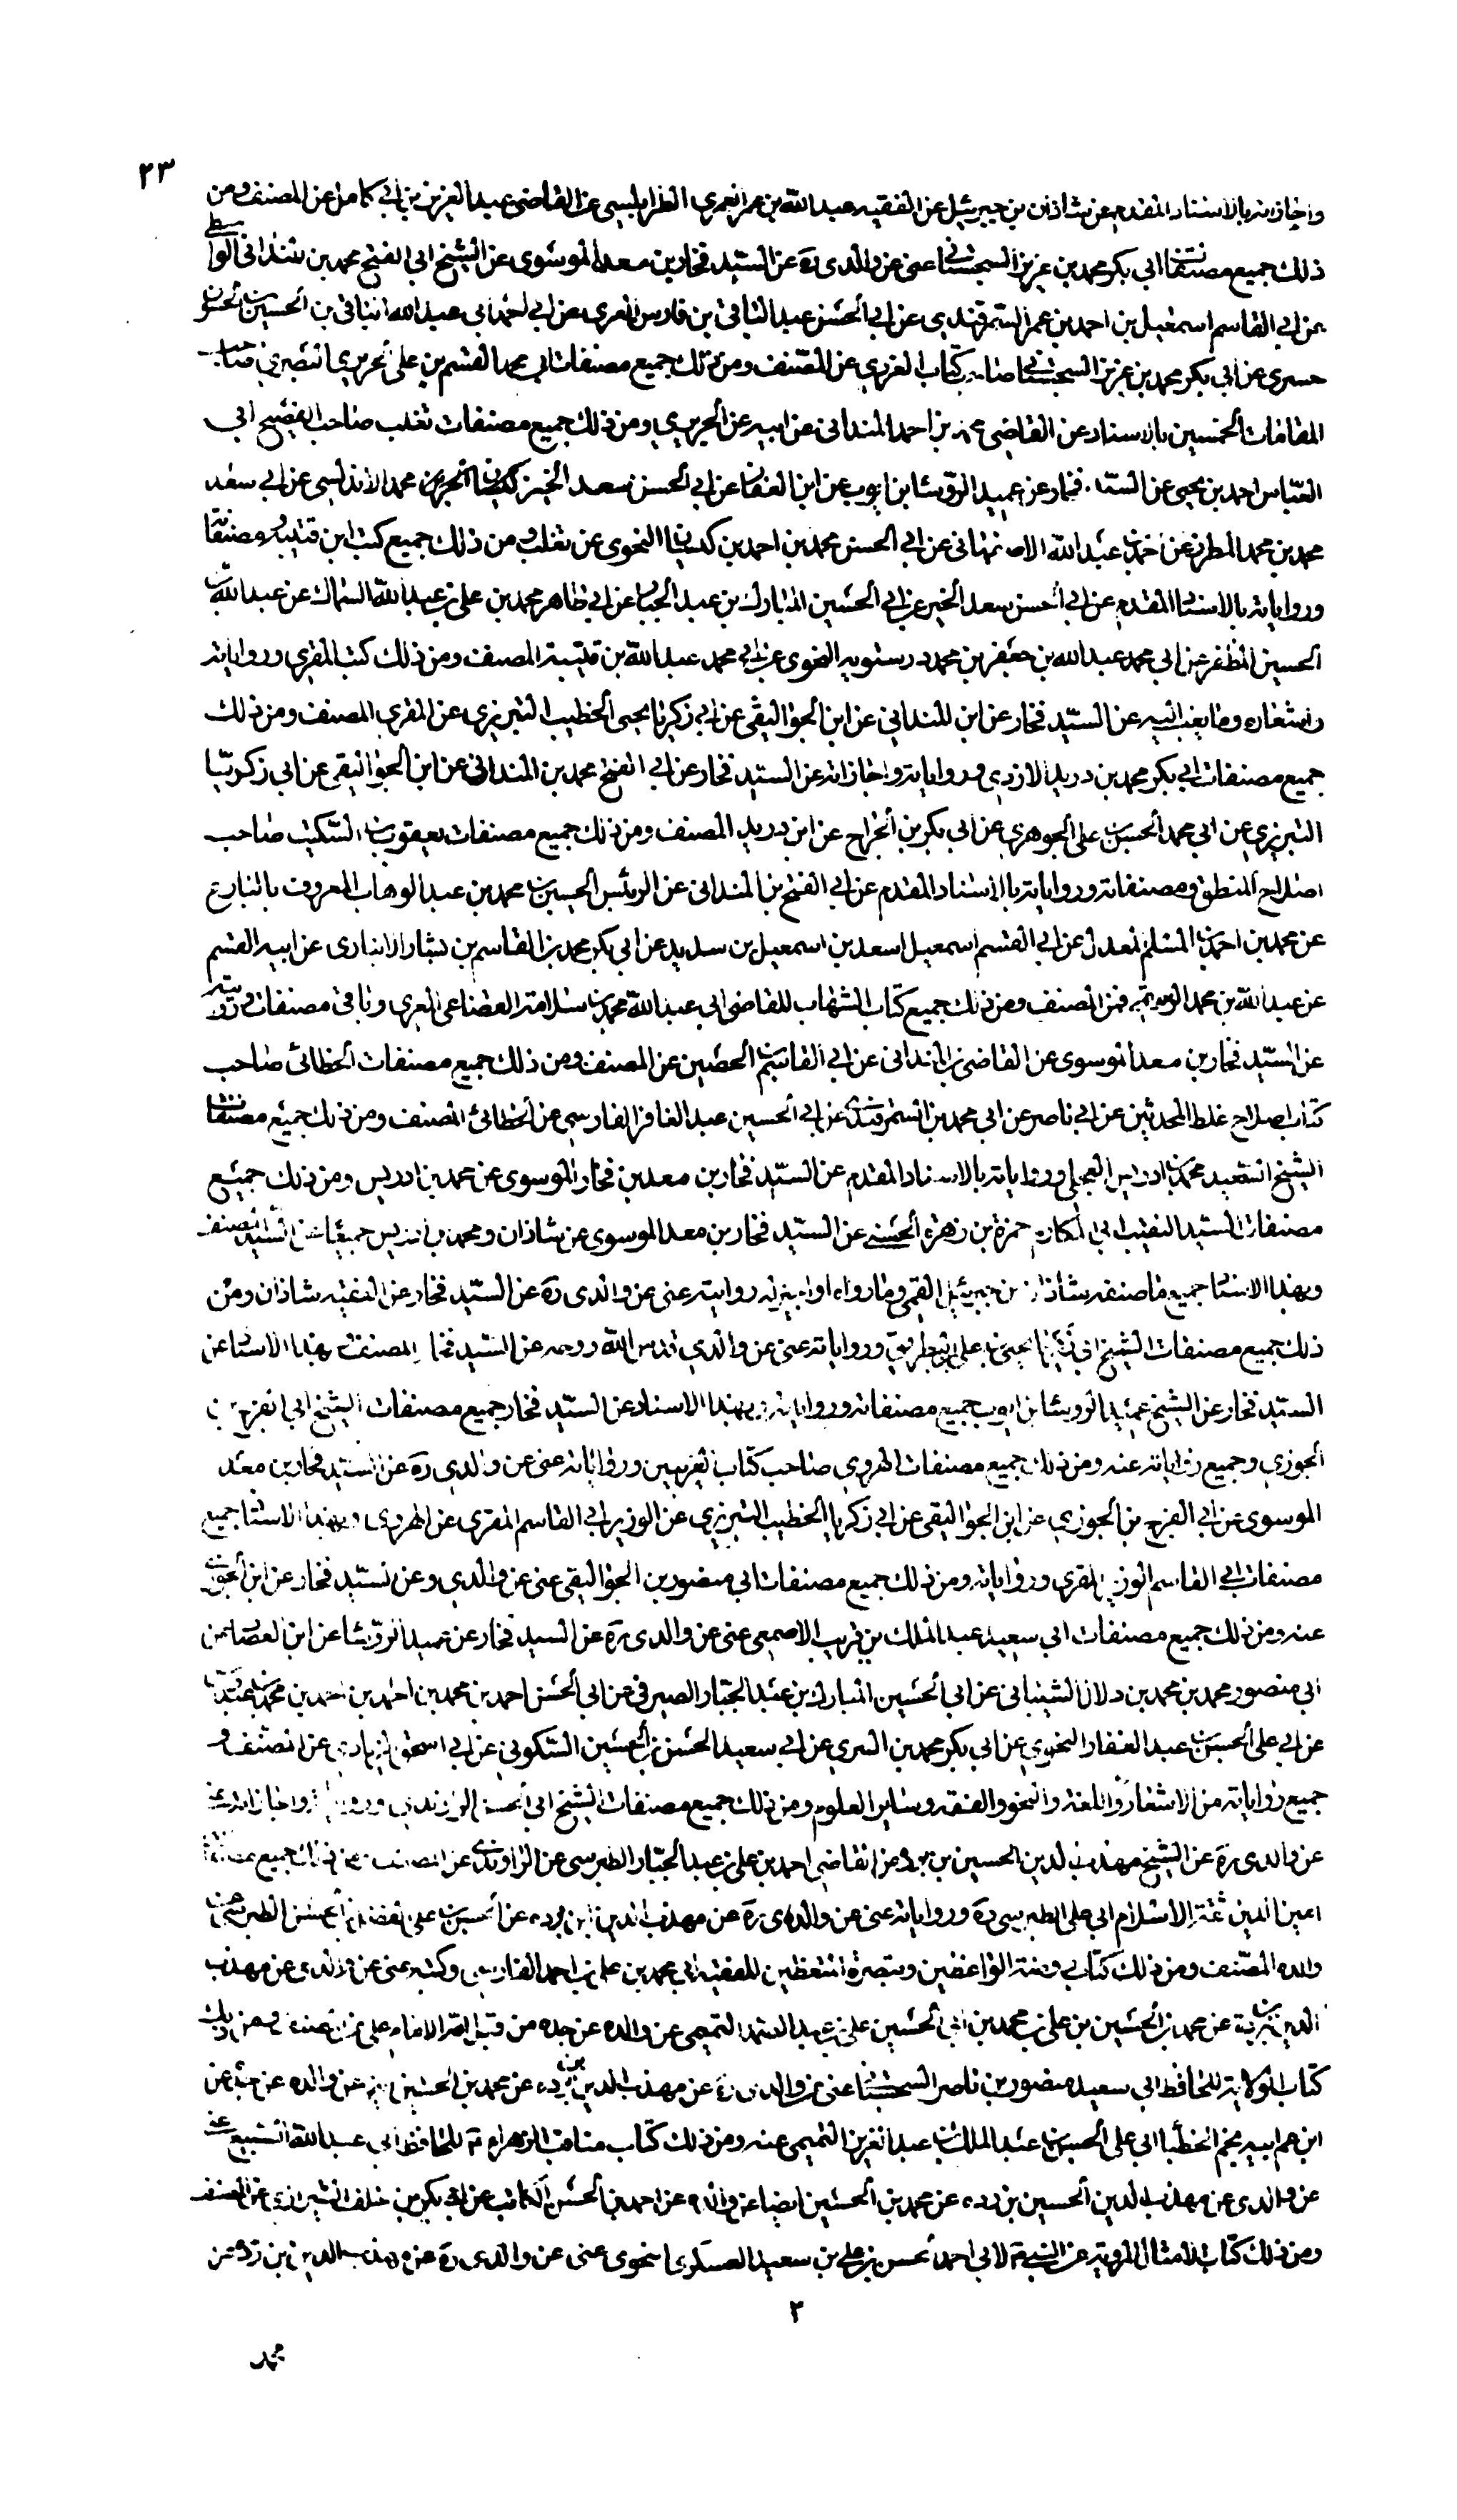 ٢٣
واجازاته بالاسناد المقدم عن شاذان بن جبرئيل عن الفقيه عبد الله بن عمر العمري الطرابلسي عن القاضي عبد العزيز بن ابي كامل عن المصنف ومن
ذلك جميع مصنفات ابي بكر محمد بن عزيز السجستاني عنى عن والدى ره عن السيد فخار بن معد الموسوى عن الشيخ ابي الفتح محمد بن الواسطي
عن ابي القاسم اسمعيل بن احمد بن عمر السمرقندي عن ابي الحسن عبد الباقي بن فارس المقري عن ابي احمد ابي عبد الله بن الحسين بن
حسري عن ابي بكر محمد بن عزيز السجستاني كتاب الغريب عن المصنف ومن ذلك جميع مصنفات ابي محمد القسم بن علي الحريري البصري صاحب
المقامات الخمسين بالاسناد عن القاضي بن احمد المنداني عن ابيه عن الحريري ومن ذلك جميع مصنفات ثعلب صاحب الفصيح ابي
العباس احمد بن يحيى عن السيد فخار عن عميد الرؤسا بن ايوب عن ابن العصار عن ابي الحسن سعد الخير بن محمد الاندلسي عن ابي سعد
محمد بن محمد المطرز عن احمد بن عبد الله الاصفهاني عن ابي الحسن محمد بن احمد بن كيسان النحوى عن ثعلب ومن ذلك جميع كتب ابن قتيبة ومصنفاته
ورواياته بالاسناد المقدم عن ابي الحسن سعد الخير عن ابي الحسين المبارك بن عبد الجبار عن ابي طاهر محمد بن علي بن عبد الله السماك عن عبد الله بن
الحسين المظفر عن ابي محمد عبد الله بن جعفر بن محمد درستويه النحوى عن ابي محمد عبد الله بن قتيبة المصنف ومن ذلك كتب المقري ورواياته
واشعاره عن السيد فخار عن ابن المنداني عن ابن الجواليقي عن ابي زكريا يحيى الخطيب التبريزي عن المقري المصنف ومن ذلك
جميع مصنفات ابي بكر محمد بن دريد الازدي ورواياته واجازاته عن السيد فخار عن ابي الفتح محمد بن المنداني عن ابن الجواليقي عن ابي زكريا
التبريزي عن ابي محمد الحسن بن علي الجوهري عن ابي بكر بن الجراح عن ابن دريد المصنف ومن ذلك جميع مصنفات يعقوب بن السكيت صاحب
اصلاح المنطق ومصنفاته ورواياته بالاسناد المقدم عن ابي الفتح بن المنداني عن الرئيس الحسين بن محمد بن عبد الوهاب المعروف بالبارع
عن محمد بن احمد بن المسلم المعدل عن ابي القسم اسمعيل اسعد بن اسمعيل بن سويد عن ابي بكر محمد بن القاسم بن بشار الانباري عن ابيه القسم
عن عبد الله بن محمد الرستمي عن المصنف ومن ذلك جميع كتاب الشهاب للقاضي ابي عبد الله محمد بن سلامة القضاعي المغربي وباقي مصنفاته ورواياته
عن السيد فخار بن معد الموسوي عن القاضي بن المنداني عن ابي القاسم بن الحصين عن المصنف ومن ذلك جميع مصنفات الخطابي صاحب
كتاب اصلاح غلط المحدثين عن ابي ناصر عن ابي محمد بن السمرقندي عن ابي الحسين عبد الغافر الفارسي عن الخطابي المصنف ومن ذلك جميع مصنفات
الشيخ السعيد محمد بن ادريس العجلي ورواياته بالاسناد المقدم عن السيد فخار بن معد بن فخار الموسوي عن محمد بن ادريس ومن ذلك جميع
مصنفات السيد النقيب ابي المكارم حمزة بن زهرة الحسيني عن السيد فخار بن معد الموسوي عن شاذان ومحمد بن ادريس جميعا عن السيد المصنف
وبهذا الاسناد جميع ما صنفه شاذان بن جبرئيل القمي وما رواه او اجيز له روايته عنى عن والدى ره عن السيد فخار عن الفقيه شاذان ومن
ذلك جميع مصنفات الشيخ يحيى بن علي البطريق ورواياته عنى عن والدي قدس الله روحه عن السيد فخار المصنف بهذا الاسناد عن
السيد فخار عن الشيخ عميد الرؤسا بن ايوب جميع مصنفاته ورواياته وبهذا الاسناد عن السيد فخار جميع مصنفات الشيخ ابي الفرج بن
الجوزي وجميع رواياته عنه ومن ذلك جميع مصنفات الهروي صاحب كتاب الغريبين ورواياته عنى عن والدي ره عن السيد فخار بن معد
الموسوى عن ابي الفرج بن الجوزي عن ابن الجواليقي عن ابي زكريا الخطيب التبريزي عن الوزير ابي القاسم المقري عن الهروي وبهذا الاسناد جميع
مصنفات ابي القاسم الوزير المقري ورواياته ومن ذلك جميع مصنفات ابي منصور بن الجواليقي عنى عن والدي وعن السيد فخار عن ابن الجوزي
عنه ومن ذلك جميع مصنفات ابي سعيد عبد الملك بن قريب الاصمعي عنى عن والدى ره عن السيد فخار عن عميد الرؤسا عن ابن العصار عن
ابي منصور محمد بن محمد بن دلال الشيباني عن ابي الحسين المبارك بن عبد الجبار الصيرفي عن ابي الحسن احمد بن محمد بن احمد بن محمد بن
عن ابي علي الحسن بن عبد الغفار النحوي عن ابي بكر محمد بن السري عن ابي سعيد الحسن بن الحسين السكوني عن ابي اسحق الزيادي عن المصنف و
جميع رواياته من الاشعار واللغة والنحو والفقه وساير العلوم ومن ذلك جميع مصنفات الشيخ ابي الحسن الراوندي ورواياته واجازاته عنى
عن والدى ره عن الشيخ مهذب الدين الحسين بن ردة عن القاضي احمد بن علي بن عبد الجبار الطبرسي عن الراوندي عن المصنف ومن ذلك جميع مصنفات
امين الدين ثقة الاسلام ابي علي الطبرسي ره ورواياته عنى عن والدى ره عن مهذب الدين بن ردة عن الحسن بن علي الفضل بن الحسن الطبرسي عن
والده المصنف ومن ذلك كتابي روضة الواعظين وتبصرة المتعظين للفقيه ابي محمد بن علي بن احمد الفارسي وكتبه عنى عن والدى عن مهذب
الدين بن ردة عن محمد بن الحسين بن علي بن محمد بن ابي الحسين علي بن عبد الصمد التميمي عن والده عن جده
كتاب الولاية للحافظ ابي سعيد منصور بن ناصر السجستاني عنى عن والدى ره عن مهذب الدين بن ردة عن محمد بن الحسين عن والده عن جده عن
ابن عم ابيه نجم الخطباء ابي علي الحسن بن عبد الملك بن عبد العزيز التميمي عنه ومن ذلك كتاب مناقب الزهراء للحافظ ابي عبد الله عنى
عن والدى عن مهذب الدين الحسين بن ردة عن محمد بن الحسين ايضا عن والده عن احمد بن الحسن الكاتب عن ابي بكر بن خلف الشيرازي عن المصنف
ومن ذلك كتاب الامثال المروية عن النبي لابي احمد الحسن بن علي بن سعيد العسكري النحوى عنى عن والدى ره عن مهذب الدين بن ردة عن
٢
محمد